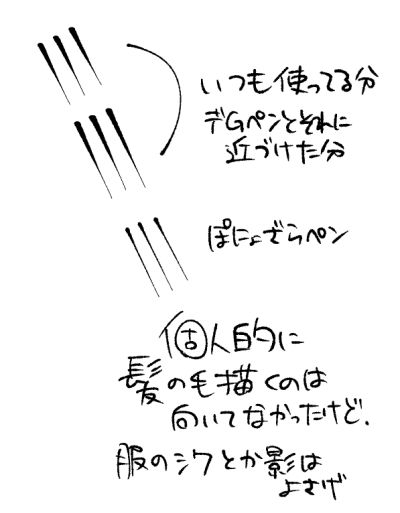 いつも使ってる分
デGペンとそれに
近づけた分
ぽにょざらペン
個人的に
髪の毛描くのは
向いてなかったけど、
服のシワとか影は
よさげ